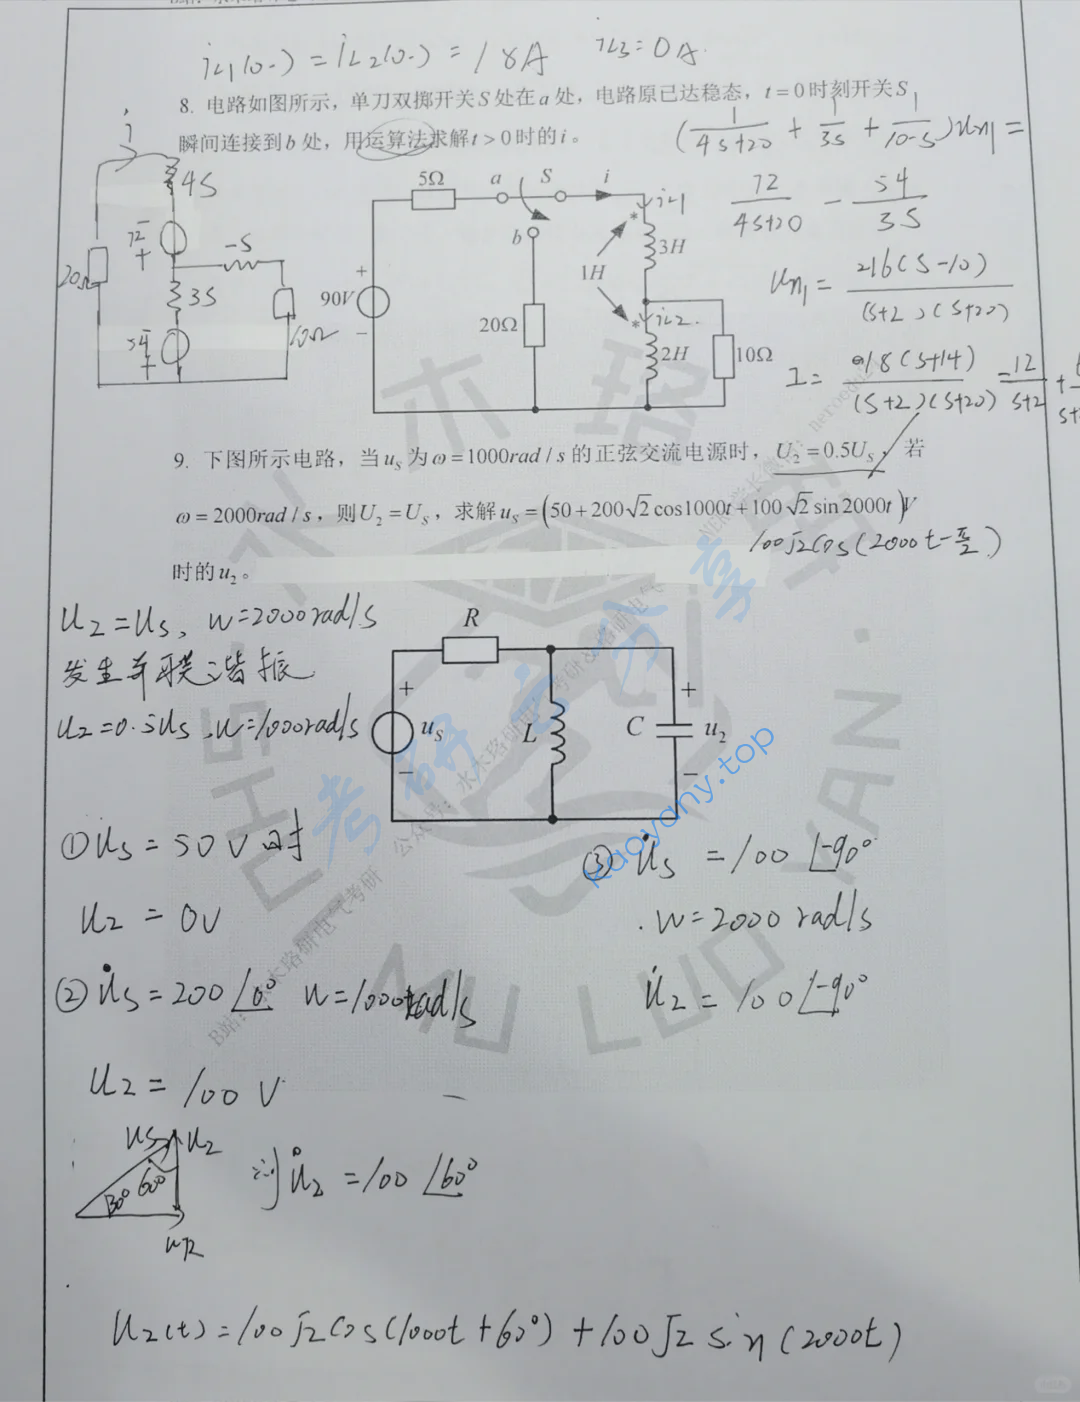 iL1(0-) = iL2(0-) = 18A iL3=0A.
8. 电路如图所示，单刀双掷开关S处在a处，电路原已达稳态，t=0时刻开关S
瞬间连接到b处，用运算法求解t>0时的i。
(1/(4s+20) + 1/3s + 1/(10-s))Un1 =
72/(4s+20) - 54/3s
Un1 = 216(s-10)/((s+2)(s+20))
I = 18(s+14)/((s+2)(s+20)) = 12/(s+2) +
i
4S
72
-S
20Ω
3S
54
10Ω
5Ω
a
S
i
iL1
*
3H
b
1H
90V
20Ω
*
iL2
2H
10Ω
9. 下图所示电路，当uS为ω=1000rad/s的正弦交流电源时，U2=0.5US，若
ω=2000rad/s，则U2=US，求解uS=(50+200√2cos1000t+100√2sin2000t)V
100√2cos(2000t-π/2)
时的u2。
U2=US, w=2000rad/s
发生并联谐振
U2=0.5US, w=1000rad/s
R
+
uS
L
C
+
u2
−
−
① U̇S = 50V时
U2 = 0V
② U̇S=200∠0° w=1000rad/s
U2 = 100V
US
U2
30°
60°
UR
则U̇2 =100∠60°
③ U̇S = 100∠-90°
w=2000 rad/s
U̇2 = 100∠-90°
U2(t)=100√2cos(1000t+60°)+100√2sin(2000t)
考研云分享
kaoyany.top
公众号：水木珞研电气考研
MU LUO YAN